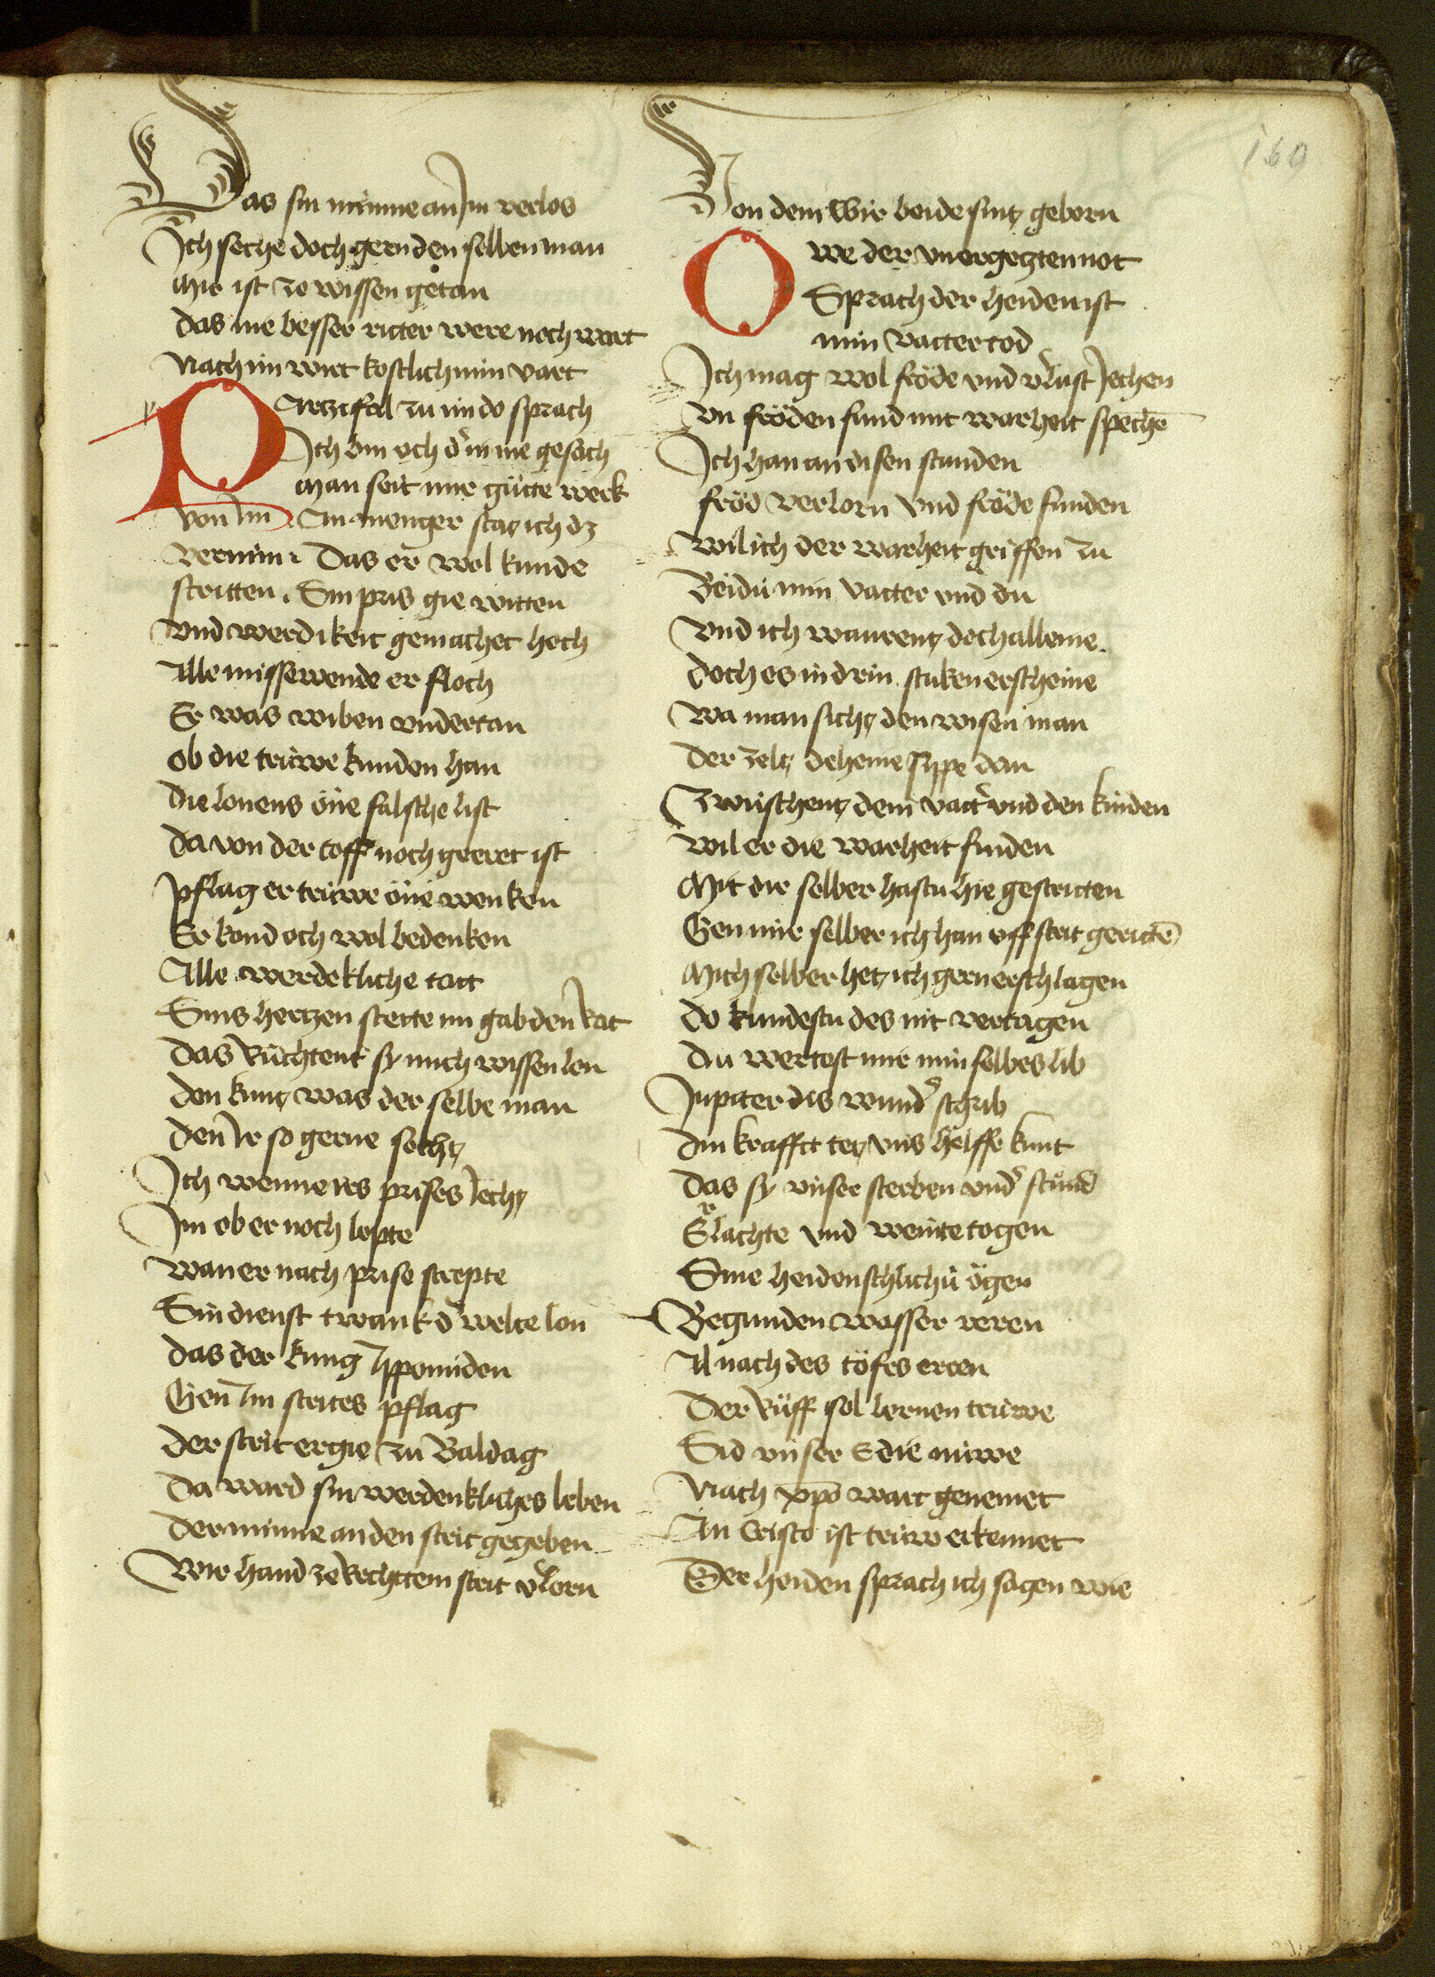 160
Das sin minne an Im verlos
Ich seche doch gern den selben man
Mir ist ze wissen getan
das nie besser ritter were noch wart
Nach im wirt kostlich min vart
Partzifal zu im do sprach
Ich bin och d in nie gesach
Man seit mir gůtte werk
von Im . An menger stat ich dz
vernim . Das er wol kunde
stritten . Sin pris gie witten
vnd werdikeit gemachet hoch
Alle missewende er floch
Er was wiben vndertan
ob die trúwe kunden han
die lonens óne falsche list
da von der toff noch geeret ist
pflag er trúwe óne wenken
Er kond och wol bedenken
Alle werdekliche tatt
Sins hertzen stette im gab den Rat
das Růchtent sy mich wissen len
den kunt was der selbe man
den Ir so gerne secht
Ich wenne irs prises Iecht
Im ob er noch lepte
wan er nach prise strepte
Sin dienst twank d welte lon
das der kung Ippomiden
Gen Im strites pflag
der strit ergie zu Baldag
Da ward sin werdenkliches leben
der minne an den strit gegeben
Wir hand ze Rechttem strit vlorn
Von dem wir beide sint geborn
Owe der vnergetzten not
Sprach der heiden ist
min vatter tod
Ich mag wol fröde vnd vlust Iechen
vn fröden fund mit warheit spechē
Ich han an disen stunden
fröd verlorn vnd fröde funden
wil ich der warheit griffen zu
Beidú min vatter vnd du
vnd ich warent doch alleine
doch es in drin stuken erscheine
wa man sicht den wisen man
der zelt deheine sippe dan
Zwúschent dem vatt vnd den kinden
wil er die warheit finden
Mit dir selber hastu hie gestritten
Gen mir selber ich han vff strit gerittē
Mich selber het ich gern erschlagen
do kundestu des nit vertagen
du wertest mir min selbes lib
Jupiter dis wund schrib
din krafft tet vns helffe kunt
das sy vnser sterben vnd stůnd
Er lachte vnd weinte togen
Sine heidenschlichú ögen
Begunden wasser reren
Al nach des töfes eren
Der Túff sol lernen trúwe
Sid vnser E die núwe
Nach xpō wart genemet
An Cristo ist trúw erkennet
Der heiden sprach ich sagen wie